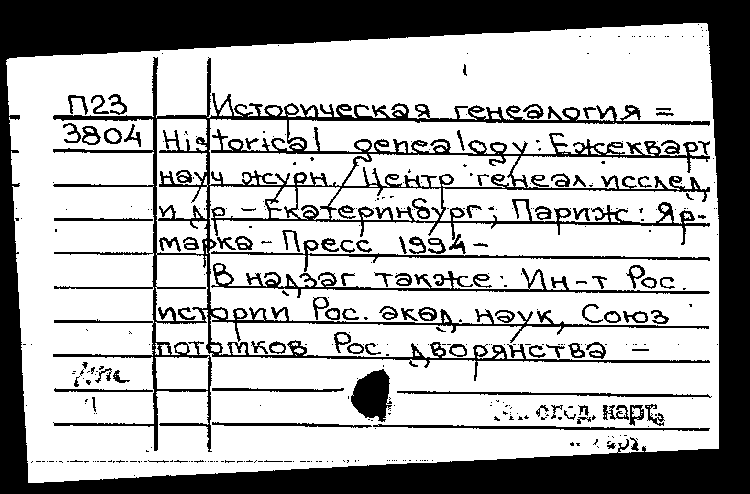 П23 Историческая генеалогия =
3804 Historical genealogy: Ежекварт
науч журн. / Центр генеал. исслед.
и др - Екатеринбург; Париж: Яр-
марка - Пресс, 1994 -
В надзаг также: Ин-т Рос.
истории Рос. акад. наук, Союз
потомков Рос. дворянства -
след. карт.
карт.